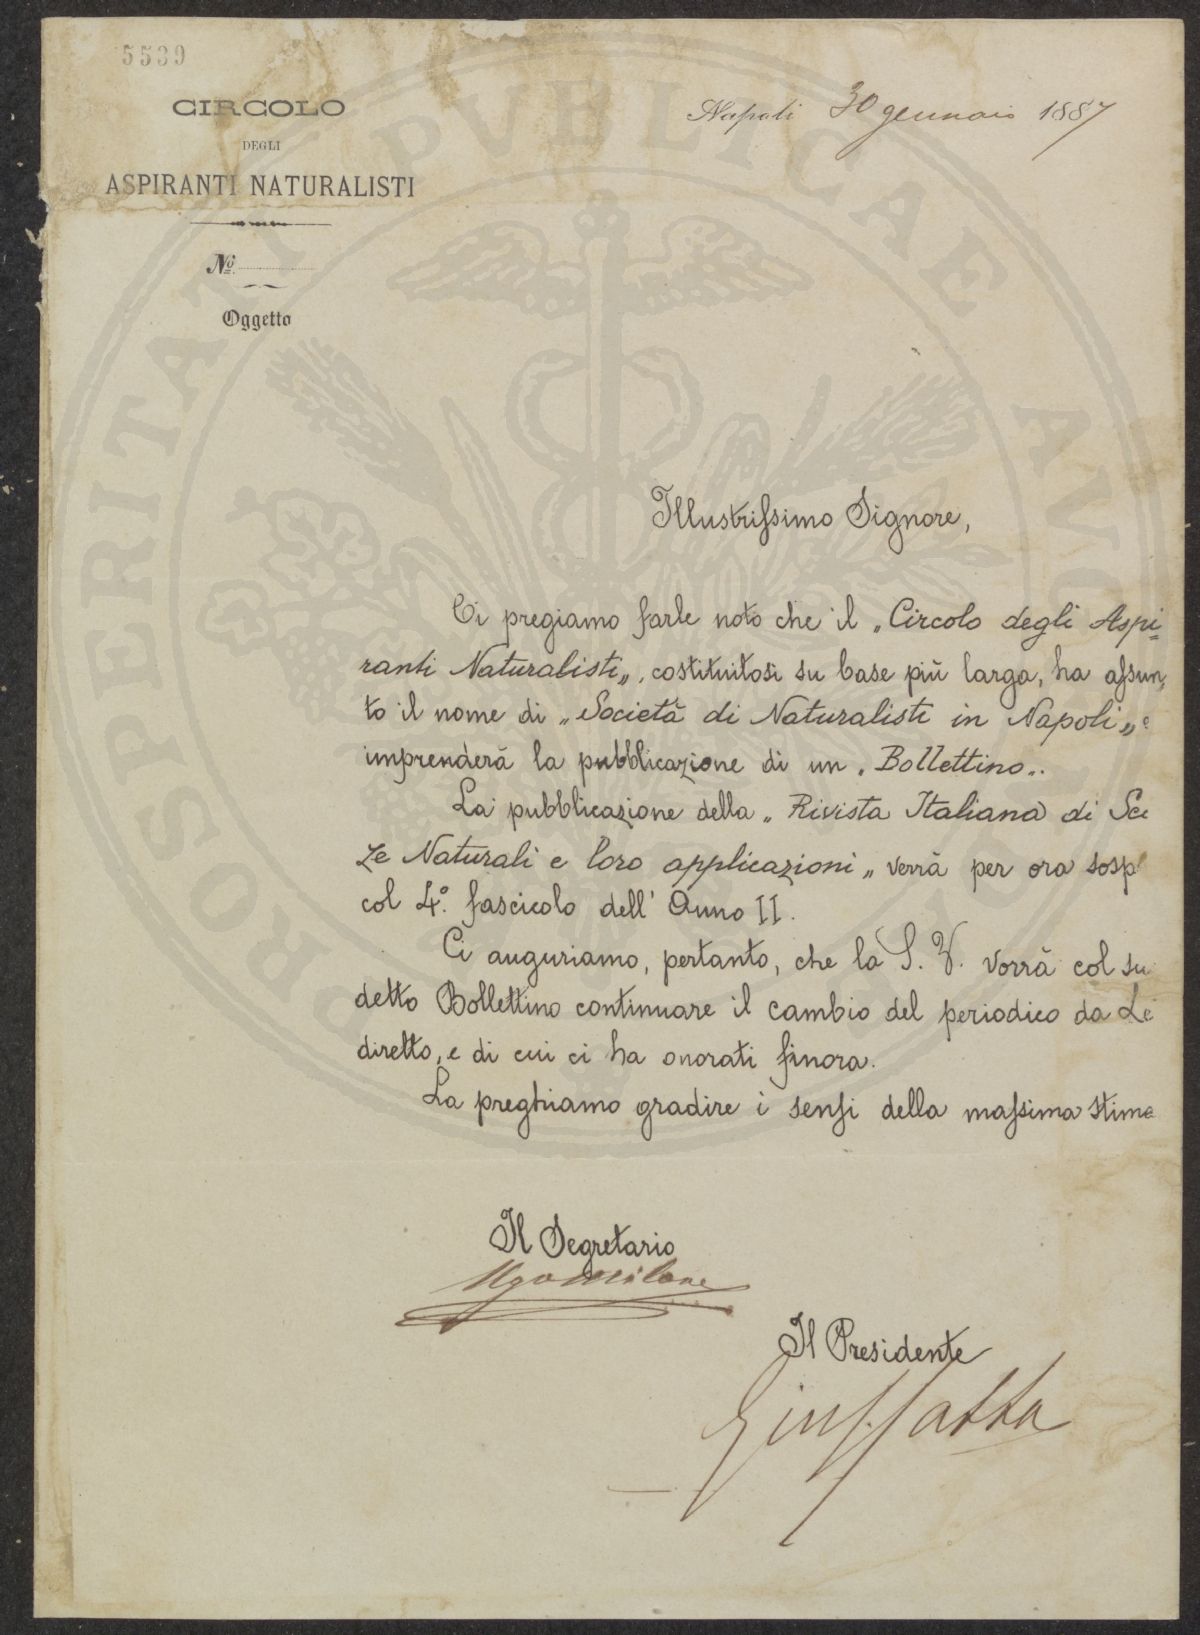 5539
CIRCOLO
DEGLI
ASPIRANTI NATURALISTI
Nº
Oggetto
Napoli 30 gennaio 1887
Illustrissimo Signore,
Ci pregiamo farle noto che il „Circolo degli Aspi-
ranti Naturalisti„, costituitosi su base più larga, ha assun-
to il nome di „Società di Naturalisti in Napoli„ e
imprenderà la pubblicazione di un „Bollettino„.
La pubblicazione della „Rivista Italiana di Sci
ze Naturali e loro applicazioni„ verrà per ora sosp
col 4º. fascicolo dell' Anno II.
Ci auguriamo, pertanto, che la S. V. vorrà col su
detto Bollettino continuare il cambio del periodico da Le
diretto, e di cui ci ha onorati finora.
La preghiamo gradire i sensi della massima stima
Il Segretario
Ugo Milone
Il Presidente
PROSPERITATI PVBLICAE AVGENDAE